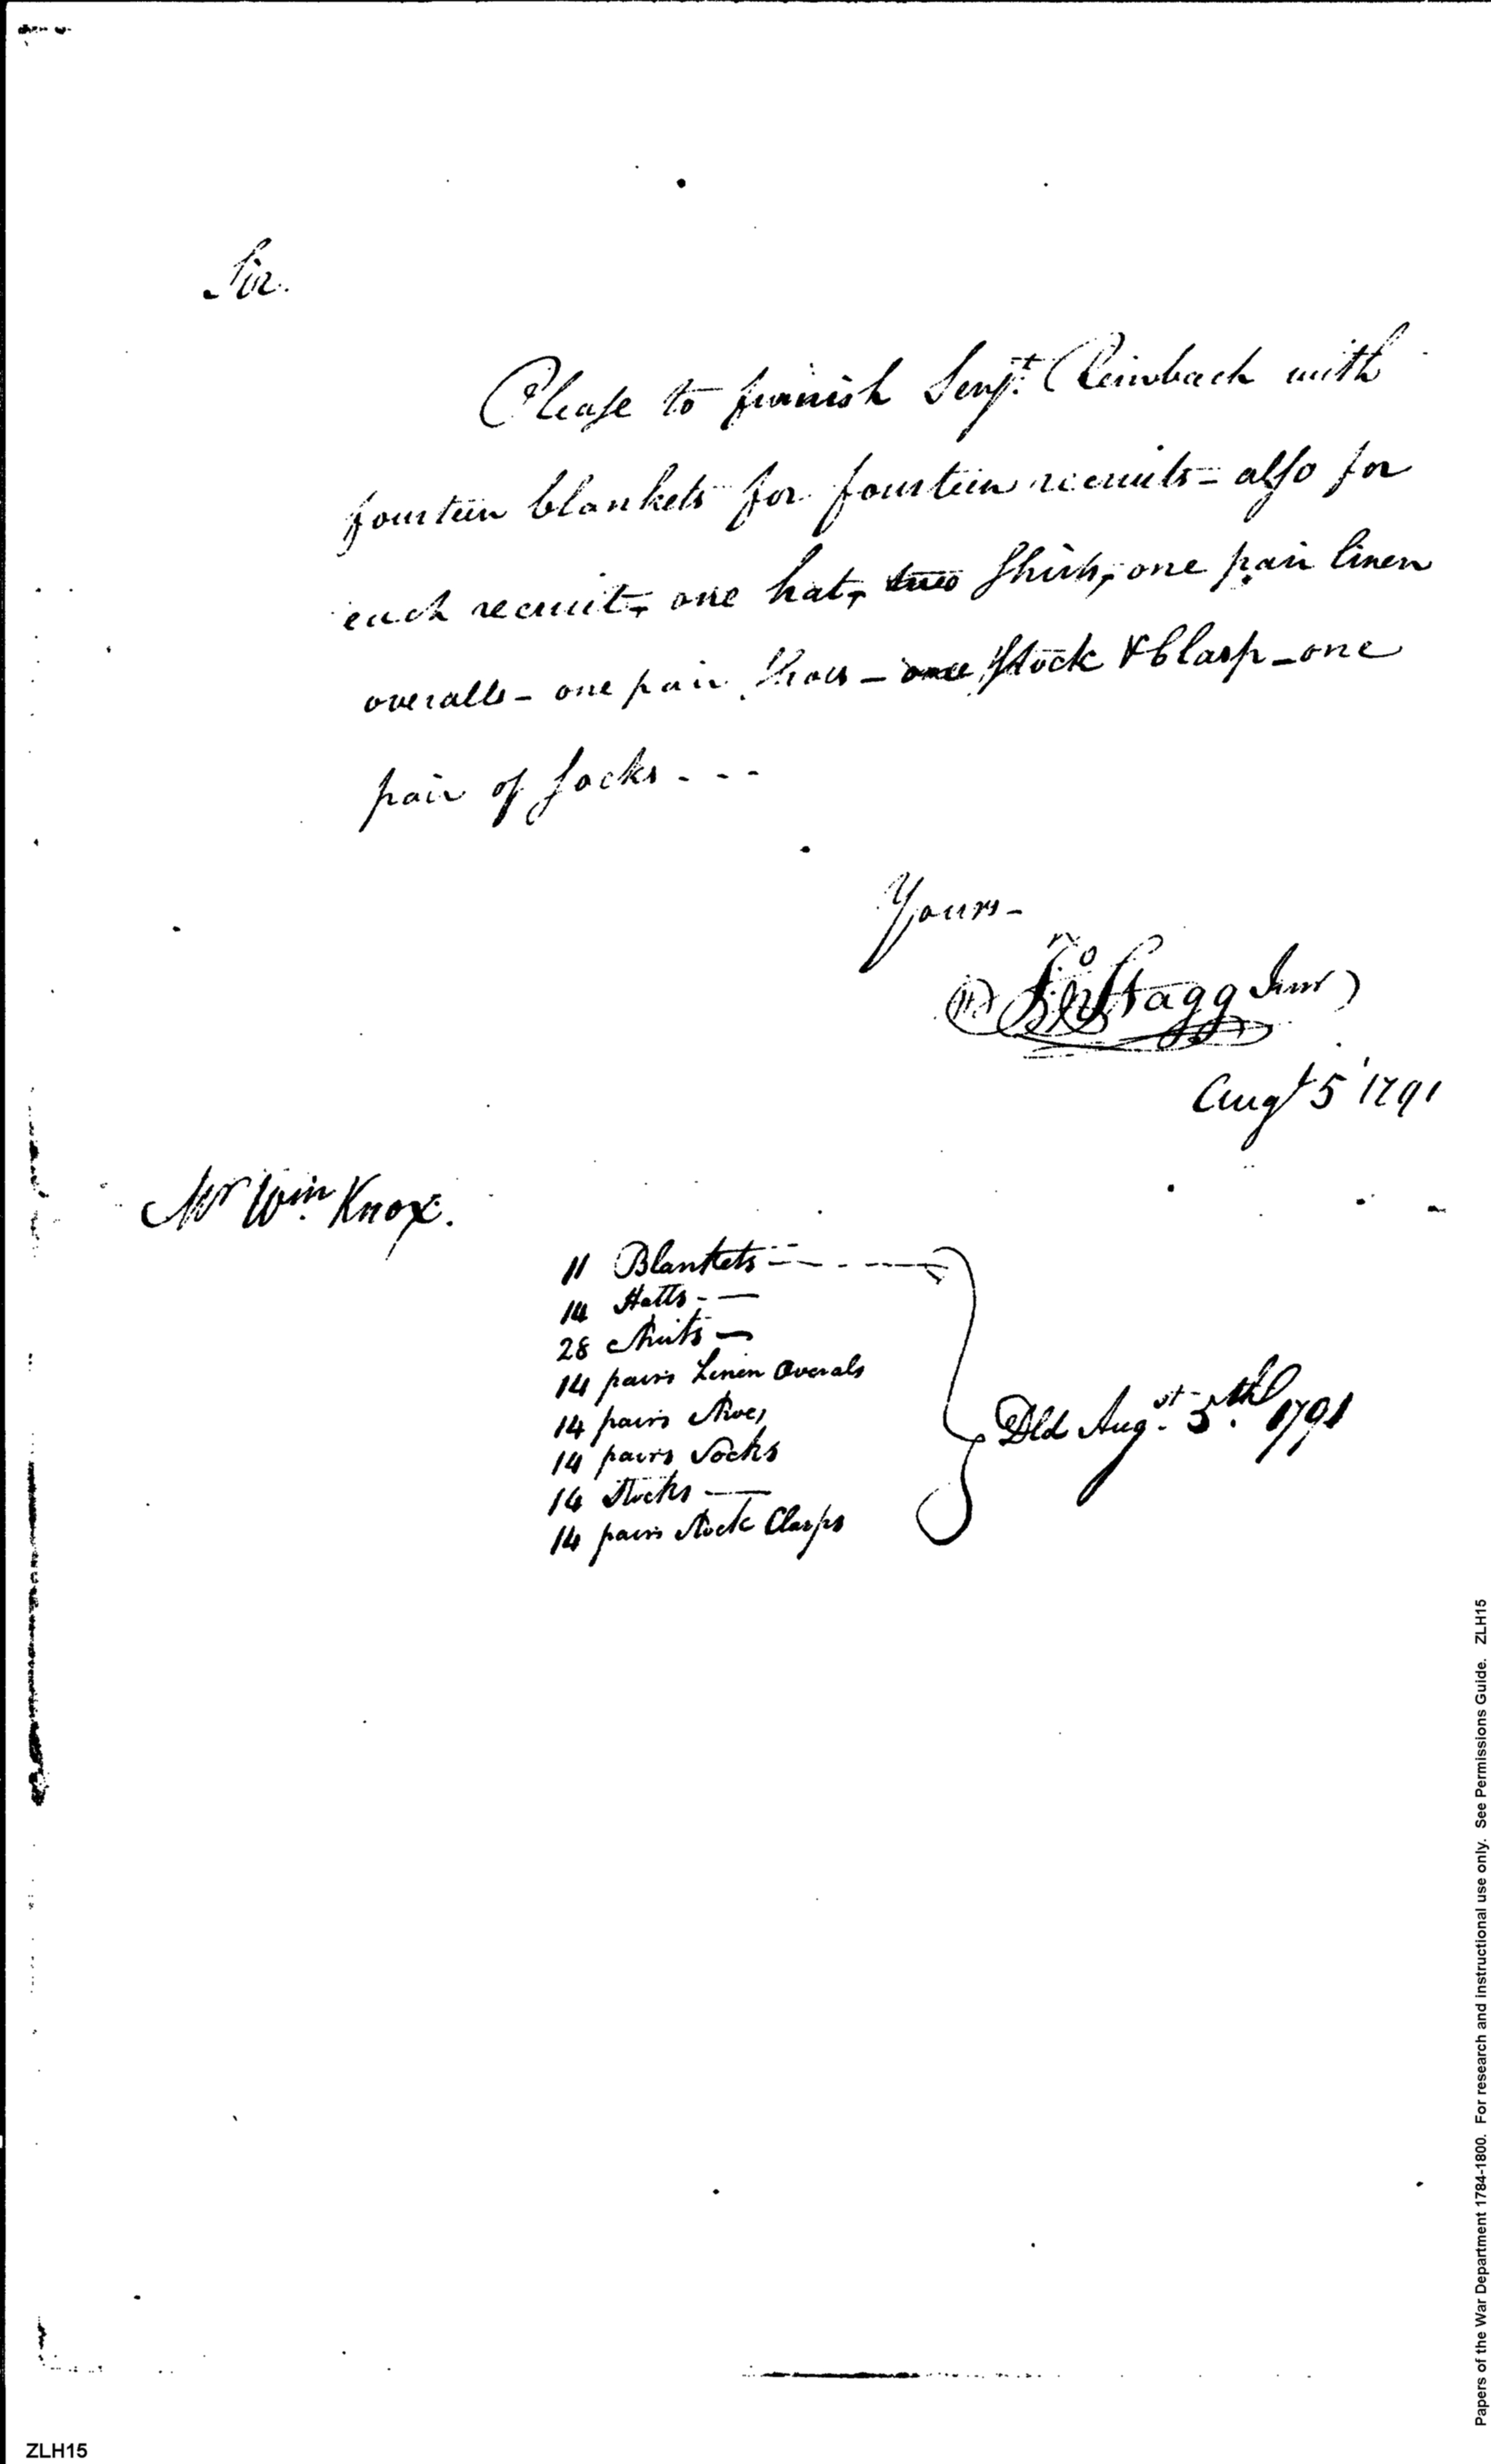 Sir.
Please to furnish Serjt. Reimbach with
fourteen blankets for fourteen recruits - also for
each recruit, one hat, two Shirts, one pair linen
overalls - one pair Shoes - one Stock & Clasp - one
pair of Socks - - -
Yours -
Jno Stagg Junr
Augt 5 1791
Mr Wm Knox.
11 Blankets
14 Hatts - —
28 Shirts —
14 pairs Linen Overals
14 pairs Shoes
14 pairs Socks
14 Stocks —
14 pairs Stock Clasps
Dld Augst. 5th. 1791
Papers of the War Department 1784-1800. For research and instructional use only. See Permissions Guide. ZLH15
ZLH15